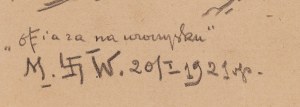 „ofiara na uroczysku"
M. 卐 W. 20/I 1921 r.